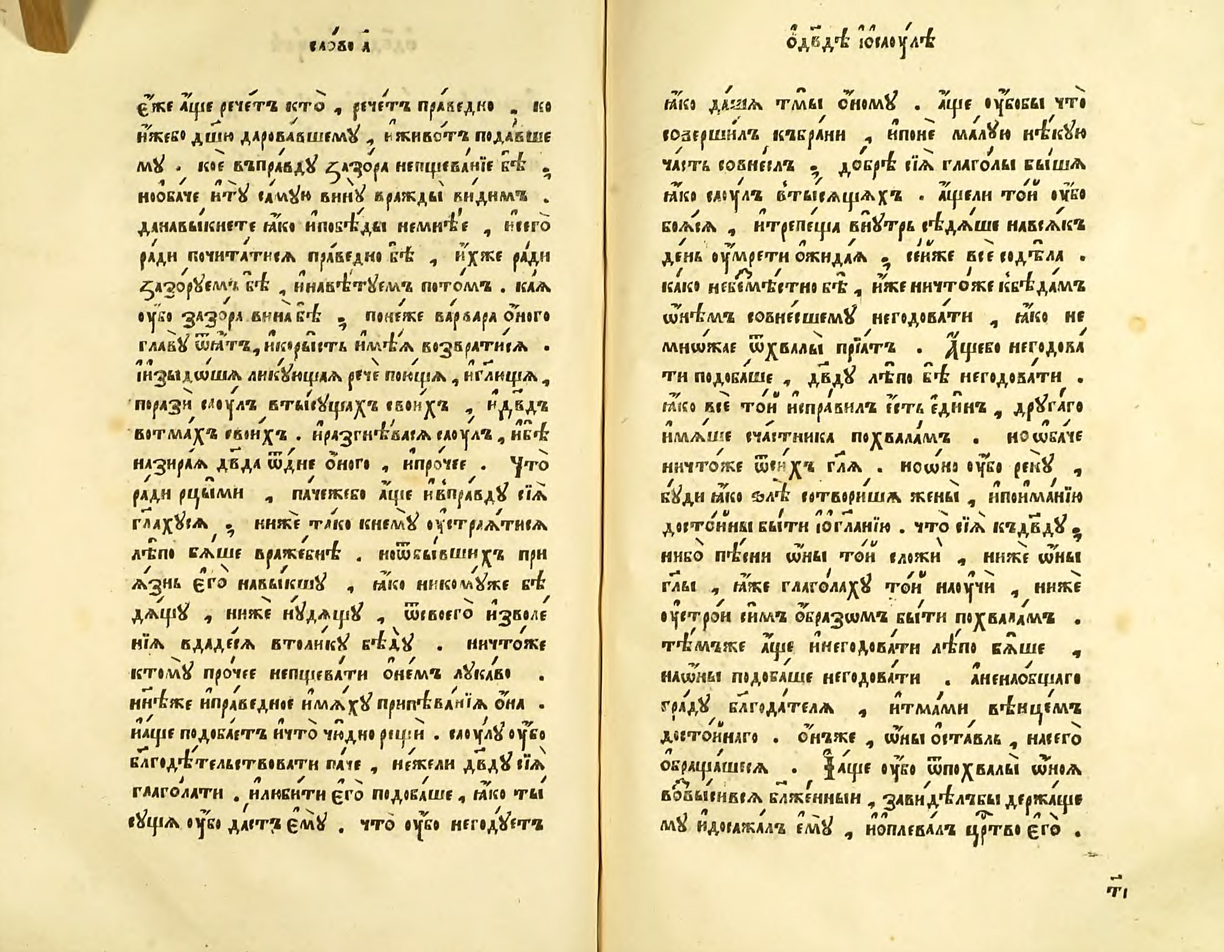 сло́во а҃
є҆́же а҆́ще рече́тъ кто̀ , рече́тъ пра́ведно , ко
и҆́жебо дш҃ю дарова́вшемꙋ , и҆живо́тъ пода́вше
мꙋ . коѐ въпра́вдꙋ ꙁазо́ра непщева́нїе бѣ̀ ;
ноо҆ба́че и҆тꙋ̀ са́мꙋю винꙋ̀ вражды̀ ви́димъ .
данавы́кнете ꙗ҆́ко и҆побѣ́ды немнѣ́е , и҆сего̀
ра́ди почита́тисѧ пра́ведно бѣ̀ , и҆́хже ра́ди
ꙁазорꙋ́емъ бѣ̀ , и҆навѣ́тꙋемъ пото́мъ . ка́ѧ
ᲂу҆́бо ꙁазо́ра вина̀бѣ̀ ; поне́же ва́рвара о҆́ного
главꙋ̀ ѿѧ́тъ , и҆коры́сть и҆мѣ́ѧ возврати́сѧ .
і҆изыдо́шѧ ликꙋ́ющаѧ рече пою́щѧ , и҆глщѧ ,
поразѝ саꙋ́лъ втысꙋщахъ свои́хъ , и҆дв҃дъ
вотма́хъ свои́хъ . и҆разгнѣ́васѧ саоу́лъ , и҆бѣ̀
назира́ѧ дв҃да ѿдне о҆́ного , и҆про́чее . Что̀
ра́ди рцы́ми , па́чежебо а҆́ще и҆впра́вдꙋ сїѧ̀
гл҃ахꙋсѧ ; нижѐ та́ко кнемꙋ̀ ᲂу҆страѧ́тисѧ
лѣ́по бѧ́ше враже́бнѣ . ноѿбы́вшихъ при
ѧ́знь є҆го̀ навы́кшꙋ , ꙗ҆́ко никомꙋ́же бѣ
дѧ́щꙋ , нижѐ нꙋ́дѧщꙋ , ѿсвоего̀ и҆зволе́
нїѧ вдаде́сѧ втоли́кꙋ бѣдꙋ̀ . ничто́же
ктомꙋ̀ про́чее непщева́ти о҆не́мъ лꙋка́во .
нн҃ѣже и҆пра́ведное и҆мѧ́хꙋ припѣва́нїѧ о҆на̀ .
и҆а҆́ще подоба́етъ и҆что̀ чю́дно рещѝ . саоу́лꙋ ᲂу҆́бо
бл҃годѣ́тельствовати па́че , не́жели дв҃дꙋ сїѧ̀
глаго́лати . и҆люби́ти є҆го̀ подоба́ше , ꙗ҆́ко ты
сꙋщѧ ᲂу҆́бо да́стъ є҆мꙋ̀ . что̀ ᲂу҆́бо негодꙋ́етъ
ѡ҆дв҃дѣ и҆ѡ҆саоу́лѣ
ꙗ҆́ко да́шѧ тмы̀ о҆́номꙋ . а҆́ще ᲂу҆́бобы что̀
соверши́лъ къбра́ни , и҆понѐ ма́лꙋю нѣ́кꙋю
ча́сть совне́слъ ; до́брѣ сїѧ̀ глаго́лы бы́шѧ
ꙗ҆́ко саоу́лъ втысѧ́щѧхъ . а҆́щели то́й ᲂу҆́бо
боѧ́сѧ , и҆трепе́ща внꙋ́трь сѣдѧ́ше навсѧ́къ
де́нь ᲂу҆мре́ти о҆жида́ѧ ; се́йже всѐ содѣ́ла .
ка́ко небезмѣ́стно бѣ̀ , и҆́же ничто́же кбѣда́мъ
ѡ҆нѣ́мъ совне́сшемꙋ негодова́ти , ꙗ҆́ко не
мно́жае ѿхвалы̀ прїѧ́тъ . А҆́щебо негодова́
ти подоба́ше , дв҃дꙋ лѣ́по бѣ̀ негодова́ти .
ꙗ҆́ко всѐ то́й и҆спра́вилъ є҆́сть є҆ди́нъ , дрꙋга́го
и҆мѧ́ше сча́стника похвала́мъ . ноѡ҆ба́че
ничто́же ѿси́хъ гл҃ѧ . ноѡ҆но ᲂу҆́бо рекꙋ̀ ,
бꙋ́ди ꙗ҆́ко ѕлѣ̀ сотвори́шѧ жены̀ , и҆поима́нїю
досто́йны бы́ти и҆ѻ҆гл҃анїю . что̀ сїѧ̀ къдв҃дꙋ ;
нибо̀ пѣ́сни ѡ҆́ны то́й сложѝ , нижѐ ѡ҆́ны
гл҃ы , ꙗ҆́же глаго́лахꙋ то́й наоучѝ , нижѐ
ᲂу҆стро́и си́мъ о҆́бразѡмъ бы́ти похвала́мъ .
тѣ́мъже а҆́ще и҆негодова́ти лѣ́по бѧ́ше ,
наѡ҆́ны подоба́ше негодова́ти . а҆ненао́бщаго
гра́дꙋ бл҃года́телѧ , и҆тма́ми вѣнце́мъ
досто́йнаго . о҆́нъже , ѡ҆́ны ѡ҆ста́вль , насего̀
ѡ҆браща́шесѧ . И҆а҆́ще ᲂу҆́бо ѿпохвалы̀ ѡ҆́ноѧ
вовы́сивсѧ бл҃же́нныи , зави́дѣлъбы держа́ще
мꙋ̀ и҆досажа́лъ є҆мꙋ̀ , и҆ѡ҆плева́лъ црⷭ҇тво є҆го̀ .
т҃і